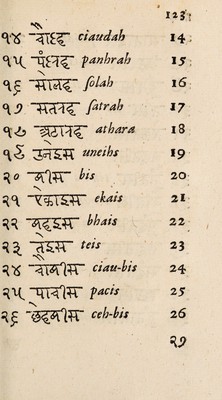 123
१४ चौदह ciaudah 14
१५ पंद्रह panhrah 15
१६ सोलह ſolah 16
१७ सतरह ſatrah 17
१८ अठारह athara 18
१९ उनइस uneihs 19
२० बीस bis 20
२१ एकाइस ekais 21
२२ बहइस bhais 22
२३ तेइस teis 23
२४ चौबीस ciau-bis 24
२५ पाचीस pacis 25
२६ छेहबीस ceh-bis 26
२७